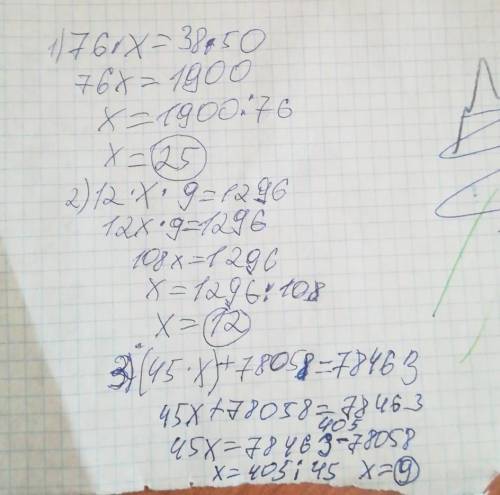 1) 76·x=38·50
76x=1900
x=1900:76
x=25
2) 12·x·9=1296
12x·9=1296
108x=1296
x=1296:108
x=12
3) (45·x)+78058=78463
45x+78058=78463
405
45x=78463-78058
x=405:45 x=9